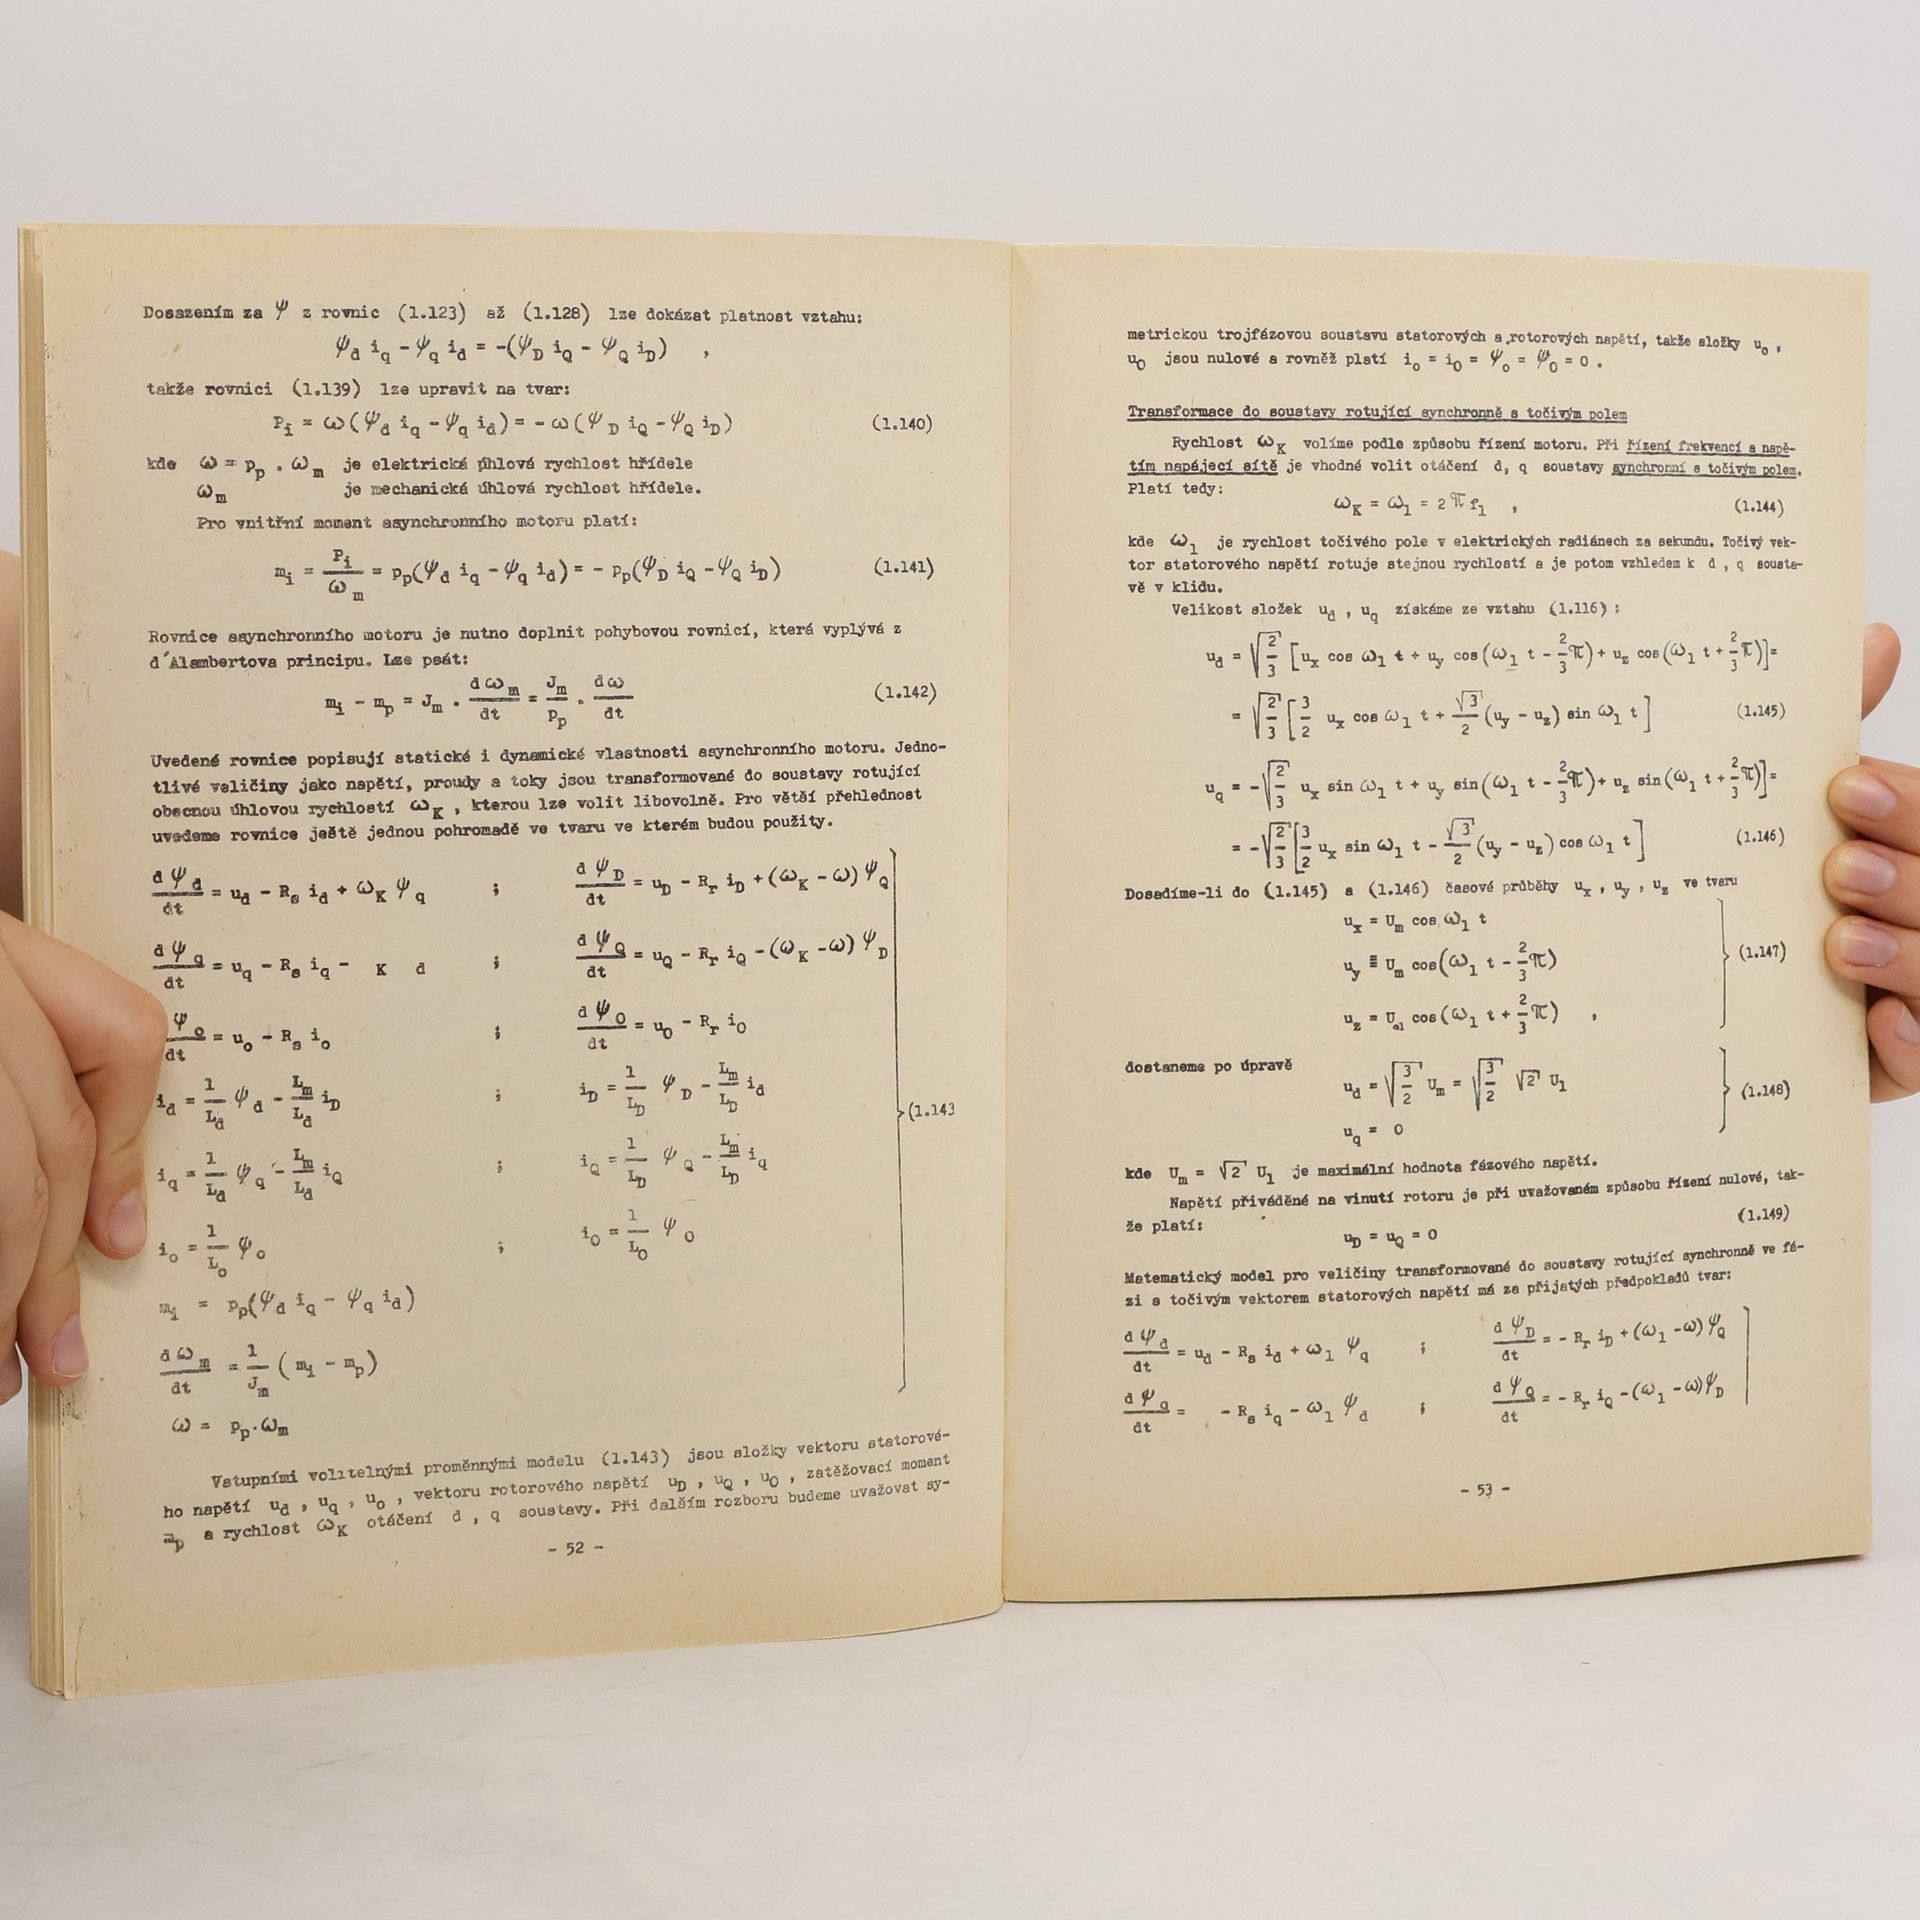 Dosazením za ψ z rovnic (1.123) až (1.128) lze dokázat platnost vztahu:
ψ_d i_q - ψ_q i_d = -(ψ_D i_Q - ψ_Q i_D) ,
takže rovnici (1.139) lze upravit na tvar:
P_i = ω(ψ_d i_q - ψ_q i_d) = - ω(ψ_D i_Q - ψ_Q i_D) (1.140)
kde ω = p_p . ω_m je elektrická úhlová rychlost hřídele
ω_m je mechanická úhlová rychlost hřídele.
Pro vnitřní moment asynchronního motoru platí:
m_i = P_i/ω_m = p_p(ψ_d i_q - ψ_q i_d) = - p_p(ψ_D i_Q - ψ_Q i_D) (1.141)
Rovnice asynchronního motoru je nutno doplnit pohybovou rovnicí, která vyplývá z
d´Alambertova principu. Lze psát:
m_i - m_p = J_m . dω_m/dt = J_m/p_p . dω/dt (1.142)
Uvedené rovnice popisují statické i dynamické vlastnosti asynchronního motoru. Jedno-
tlivé veličiny jako napětí, proudy a toky jsou transformované do soustavy rotující
obecnou úhlovou rychlostí ω_K , kterou lze volit libovolně. Pro větší přehlednost
uvedeme rovnice ještě jednou pohromadě ve tvaru ve kterém budou použity.
dψ_d/dt = u_d - R_s i_d + ω_K ψ_q ; dψ_D/dt = u_D - R_r i_D + (ω_K - ω) ψ_Q
dψ_q/dt = u_q - R_s i_q - K d ; dψ_Q/dt = u_Q - R_r i_Q - (ω_K - ω) ψ_D
ψ_o/dt = u_o - R_s i_o ; dψ_O/dt = u_O - R_r i_O
i_d = 1/L_d ψ_d - L_m/L_d i_D ; i_D = 1/L_D ψ_D - L_m/L_D i_d
(1.143
i_q = 1/L_d ψ_q - L_m/L_d i_Q ; i_Q = 1/L_D ψ_Q - L_m/L_D i_q
i_o = 1/L_o ψ_o ; i_O = 1/L_O ψ_O
m_i = p_p(ψ_d i_q - ψ_q i_d)
dω_m/dt = 1/J_m (m_i - m_p)
ω = p_p.ω_m
Vstupními volitelnými proměnnými modelu (1.143) jsou složky vektoru statorové-
ho napětí u_d , u_q , u_o , vektoru rotorového napětí u_D , u_Q , u_O , zatěžovací moment
m_p a rychlost ω_K otáčení d , q soustavy. Při dalším rozboru budeme uvažovat sy-
- 52 -
metrickou trojfázovou soustavu statorových a rotorových napětí, takže složky u_o ,
u_O jsou nulové a rovněž platí i_o = i_O = ψ_o = ψ_O = 0 .
Transformace do soustavy rotující synchronně s točivým polem
Rychlost ω_K volíme podle způsobu řízení motoru. Při řízení frekvencí a napě-
tím napájecí sítě je vhodné volit otáčení d, q soustavy synchronní s točivým polem.
Platí tedy:
ω_K = ω_1 = 2 π f_1 , (1.144)
kde ω_1 je rychlost točivého pole v elektrických radiánech za sekundu. Točivý vek-
tor statorového napětí rotuje stejnou rychlostí a je potom vzhledem k d , q sousta-
vě v klidu.
Velikost složek u_d , u_q získáme ze vztahu (1.116) :
u_d = √(2/3) [u_x cos ω_1 t + u_y cos(ω_1 t - 2/3 π) + u_z cos(ω_1 t + 2/3 π)] =
= √(2/3) [3/2 u_x cos ω_1 t + √3/2 (u_y - u_z) sin ω_1 t] (1.145)
u_q = -√(2/3) u_x sin ω_1 t + u_y sin(ω_1 t - 2/3 π) + u_z sin(ω_1 t + 2/3 π)] =
= -√(2/3) [3/2 u_x sin ω_1 t - √3/2 (u_y - u_z) cos ω_1 t] (1.146)
Dosadíme-li do (1.145) a (1.146) časové průběhy u_x , u_y , u_z ve tvaru
u_x = U_m cos ω_1 t
u_y = U_m cos(ω_1 t - 2/3 π) (1.147)
u_z = U_m cos(ω_1 t + 2/3 π) ,
dostaneme po úpravě
u_d = √(3/2) U_m = √(3/2) √2 U_1 (1.148)
u_q = 0
kde U_m = √2 U_1 je maximální hodnota fázového napětí.
Napětí přiváděné na vinutí rotoru je při uvažovaném způsobu řízení nulové, tak-
že platí: (1.149)
u_D = u_Q = 0
Matematický model pro veličiny transformované do soustavy rotující synchronně ve fá-
zi s točivým vektorem statorových napětí má za přijatých předpokladů tvar:
dψ_d/dt = u_d - R_s i_d + ω_1 ψ_q ; dψ_D/dt = - R_r i_D + (ω_1 - ω) ψ_Q
dψ_q/dt = - R_s i_q - ω_1 ψ_d ; dψ_Q/dt = - R_r i_Q - (ω_1 - ω) ψ_D
- 53 -